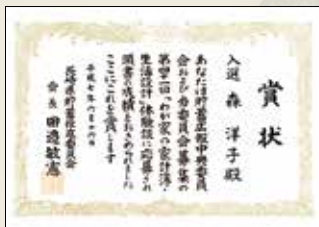 賞状
入選 森 洋子殿
あなたは貯蓄広報中央委員
会および当委員会募集の
第四十一回「わが家の家計簿・
生活設計」体験談に応募され
頭書の成績をおさめられました
ここにこれを賞します
平成七年六月十六日
長崎県貯蓄推進委員会
会長 田邉敏憲